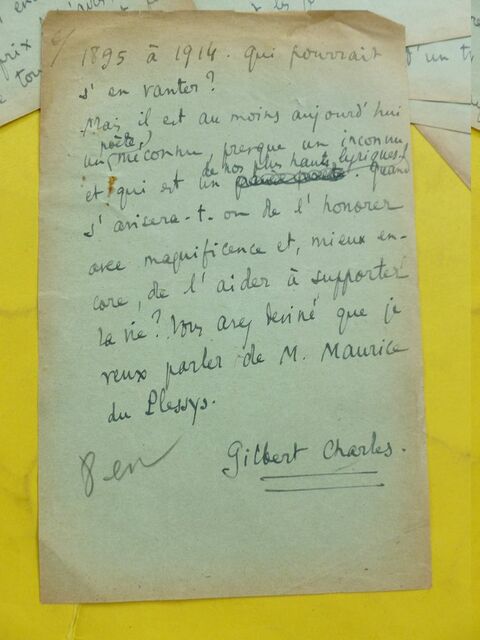 6/
1895 à 1914. qui pourrait
s'en vanter?
Mais il est au moins aujourd'hui
un poète, méconnu, presque un inconnu
et qui est un de nos plus hauts lyriques. Quand
s'avisera-t-on de l'honorer
avec magnificence et, mieux en-
core, de l'aider à supporter
la vie? Vous avez deviné que je
veux parler de M. Maurice
du Plessys.
Gilbert Charles.